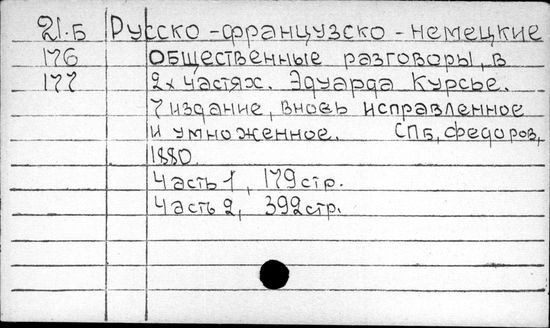 21.Б Русско-французско-немецкие
176 общественные разговоры, в
177 2х частях. Эдуарда Курсье.
7 издание, вновь исправленное
и умноженное. СПб, Федоров,
1880.
Часть 1, 179 стр.
Часть 2, 392 стр.